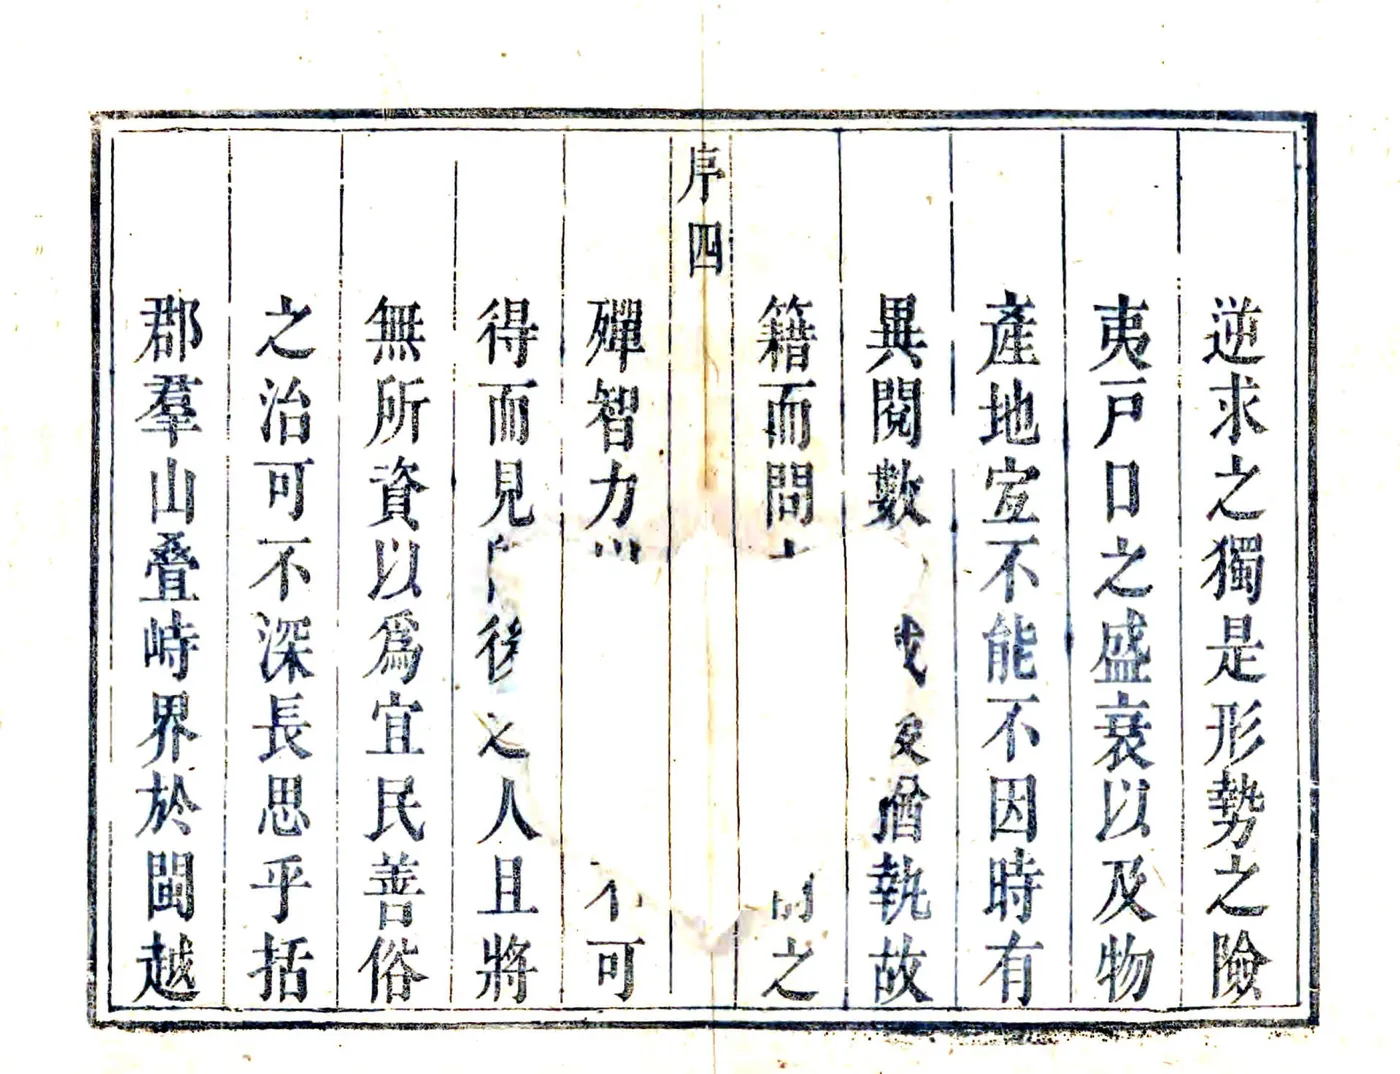 逆求之獨是形勢之險
夷戸口之盛衰以及物
產地宐不能不因時有
異閱數猶執故
籍而問之
序四
殫智力不可
得而見後之人且將
無所資以為宜民善俗
之治可不深長思乎括
郡羣山疊峙界於閩越